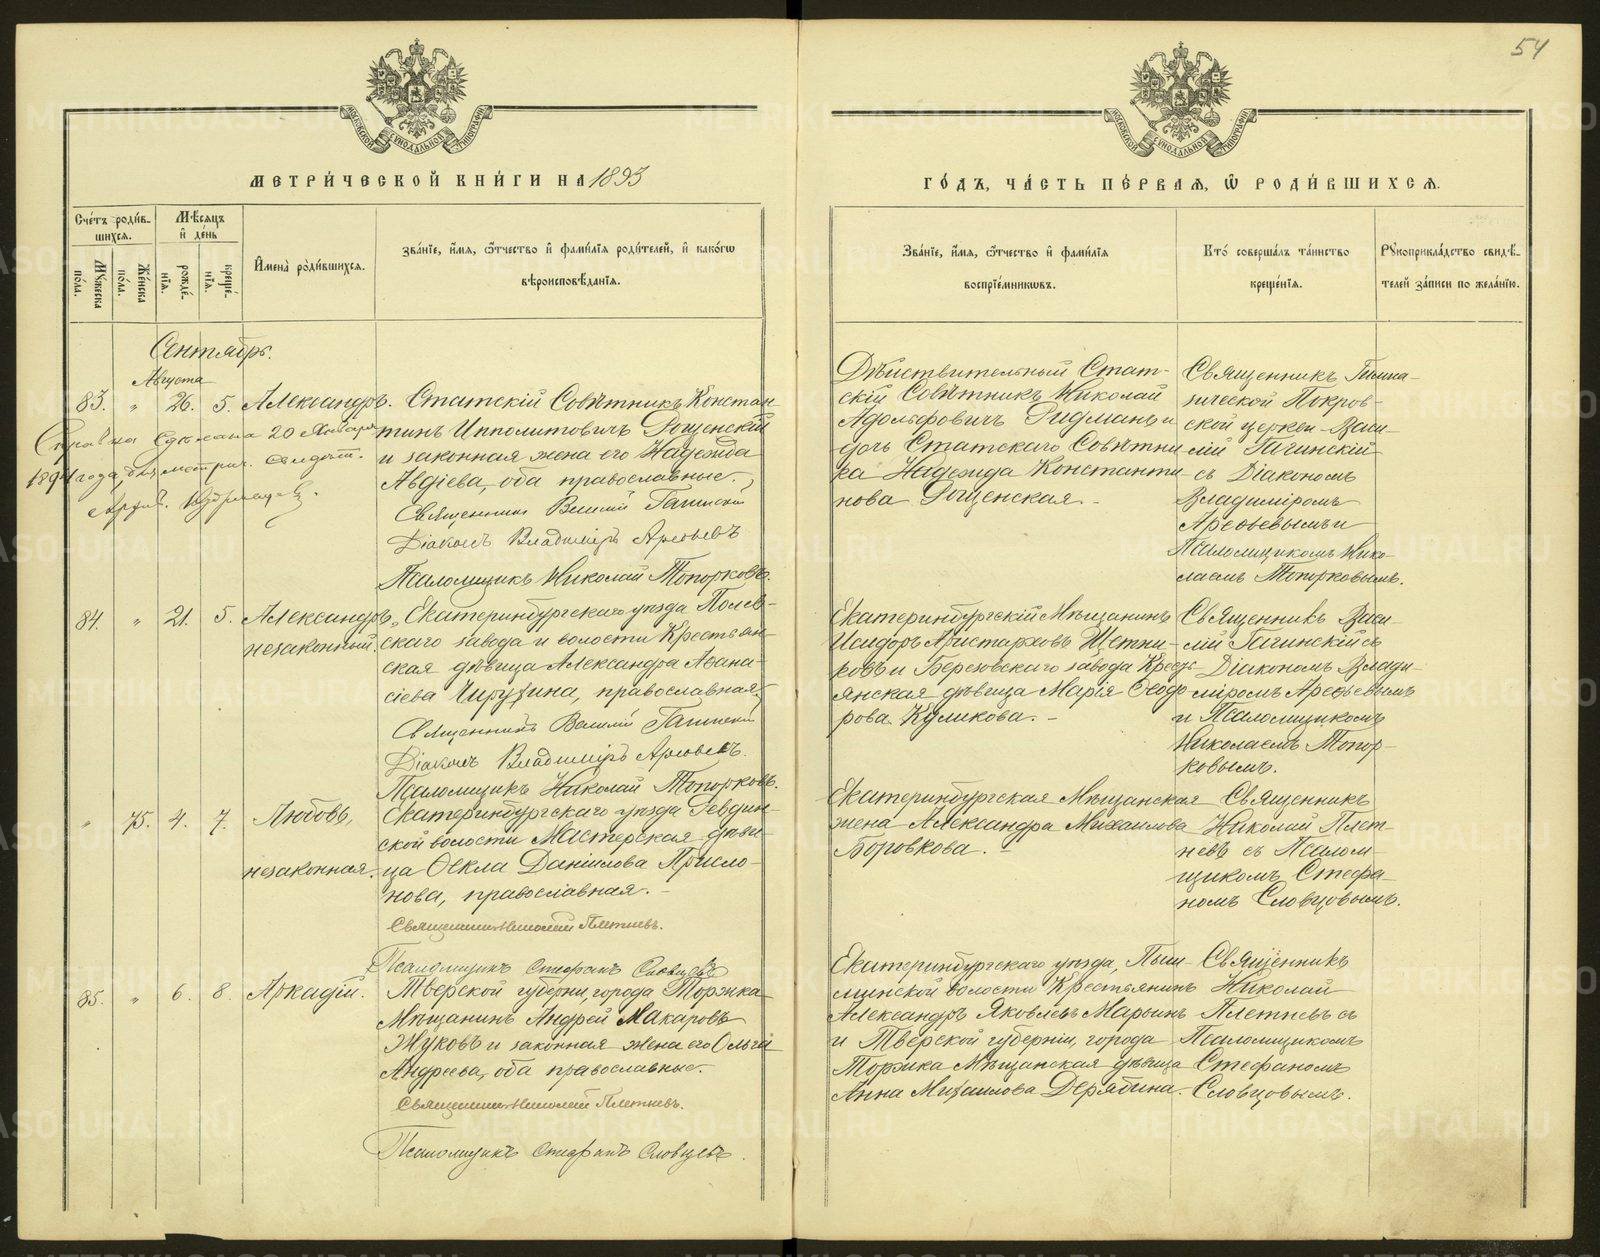 54
МЕТРИ́ЧЕСКОЙ КНИ́ГИ НА 1893
ГО́ДЪ, ЧА́СТЬ ПЕ́РВАЯ, Ѽ РОДИ́ВШИХСЯ.
Сче́тъ роди́в-
шихся.
Мѣ́сяцъ
и҆ де́нь
Му́жеска
по́ла.
Же́нска
по́ла.
рожде́-
нїя.
креще́-
нїя.
И҆мена̀ роди́вшихся.
Зва́нїе, и҆́мя, ѻ҆́тчество и҆ фами́лїя роди́телей, и҆ како́гѡ
вѣроисповѣ́данїя.
Зва́нїе, и҆́мя, ѻ҆́тчество и҆ фами́лїя
воспрїе́мникѡвъ.
Кто́ соверша́лъ та́инство
креще́нїя.
Рꙋкоприкла́дство свидѣ́-
телей за́писи по жела́нїю.
Сентябрь.
Августа
83. " 26. 5. Александръ.
Справка сдѣлана 20 Января
1894 года, для метрич. свидѣт.
Статскій Совѣтникъ Констан-
тинъ Ипполитовичъ Рощенскій
и законная жена его Надежда
Авдіева, оба православные.
Священникъ Василій Гагинскій
Діаконъ Владиміръ Арефьевъ
Псаломщикъ Николай Топорковъ.
Дѣйствительный Стат-
скій Совѣтникъ Николай
Адольфовичъ Гидманъ и
дочь Статскаго Совѣтни-
ка Надежда Константи-
нова Рощенская.
Священникъ Гимна-
зической Покров-
ской церкви Васи-
лій Гагинскій
съ Діакономъ
Владиміромъ
Арефьевымъ и
Псаломщикомъ Нико-
лаемъ Топорковымъ.
84. " 21. 5. Александръ,
незаконный.
Екатеринбургскаго уѣзда Полев-
скаго завода и волости Крестьян-
ская дѣвица Александра Аѳана-
сіева Чирухина, православная.
Священникъ Василій Гагинскій
Діаконъ Владиміръ Арефьевъ.
Псаломщикъ Николай Топорковъ.
Екатеринбургскій Мѣщанинъ
Исидоръ Аристарховъ Щетни-
ковъ и Березовскаго завода Кресть-
янская дѣвица Марія Ѳеодо-
рова Куликова.
Священникъ Васи-
лій Гагинскій съ
Діакономъ Влади-
міромъ Арефьевымъ
и Псаломщикомъ
Николаемъ Топор-
ковымъ.
" 75. 4. 7. Любовь,
незаконная.
Екатеринбургскаго уѣзда Ревдин-
ской волости Мастерская дѣви-
ца Ѳекла Даніилова Присло-
нова, православная.
Священникъ Николай Плетневъ.
Псаломщикъ Стефанъ Словцовъ
Екатеринбургская Мѣщанская
жена Александра Михаилова
Боровкова.
Священникъ
Николай Плет-
невъ съ Псалом-
щикомъ Стефа-
номъ Словцовымъ.
85. " 6. 8. Аркадій.
Тверской губерніи, города Торжка
Мѣщанинъ Андрей Макаровъ
Жуковъ и законная жена его Ольга
Андреева, оба православные.
Священникъ Николай Плетневъ.
Псаломщикъ Стефанъ Словцовъ.
Екатеринбургскаго уѣзда, Пыш-
минской волости Крестьянинъ
Александръ Яковлевъ Марьинъ
и Тверской губерніи, города
Торжка Мѣщанская дѣвица
Анна Михаилова Дерябина.
Священникъ
Николай
Плетневъ съ
Псаломщикомъ
Стефаномъ
Словцовымъ.